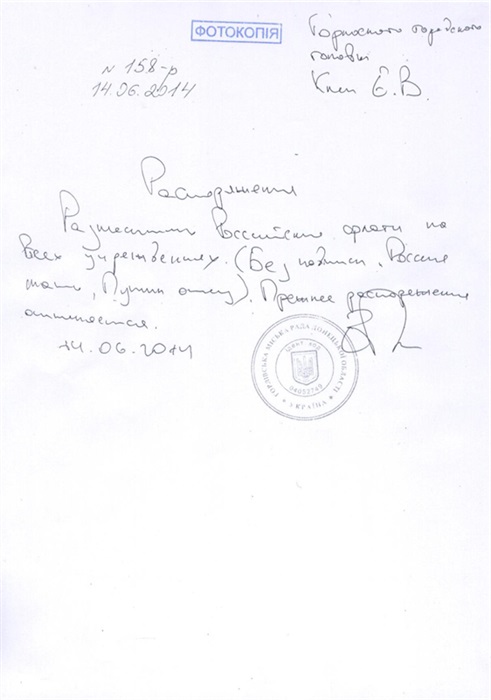 ФОТОКОПІЯ
городского
головы
Клеп Е.В.
N 158-р
14.06.2014
Распоряжение
Разместить Российские флаги на
всех учреждениях. (Без надписи "Россия
мать, Путин отец). Прежнее распоряжение
отменяется.
14.06.2014
ГОРЛІВСЬКА МІСЬКА РАДА ДОНЕЦЬКОЇ ОБЛАСТІ
* УКРАЇНА *
04052784